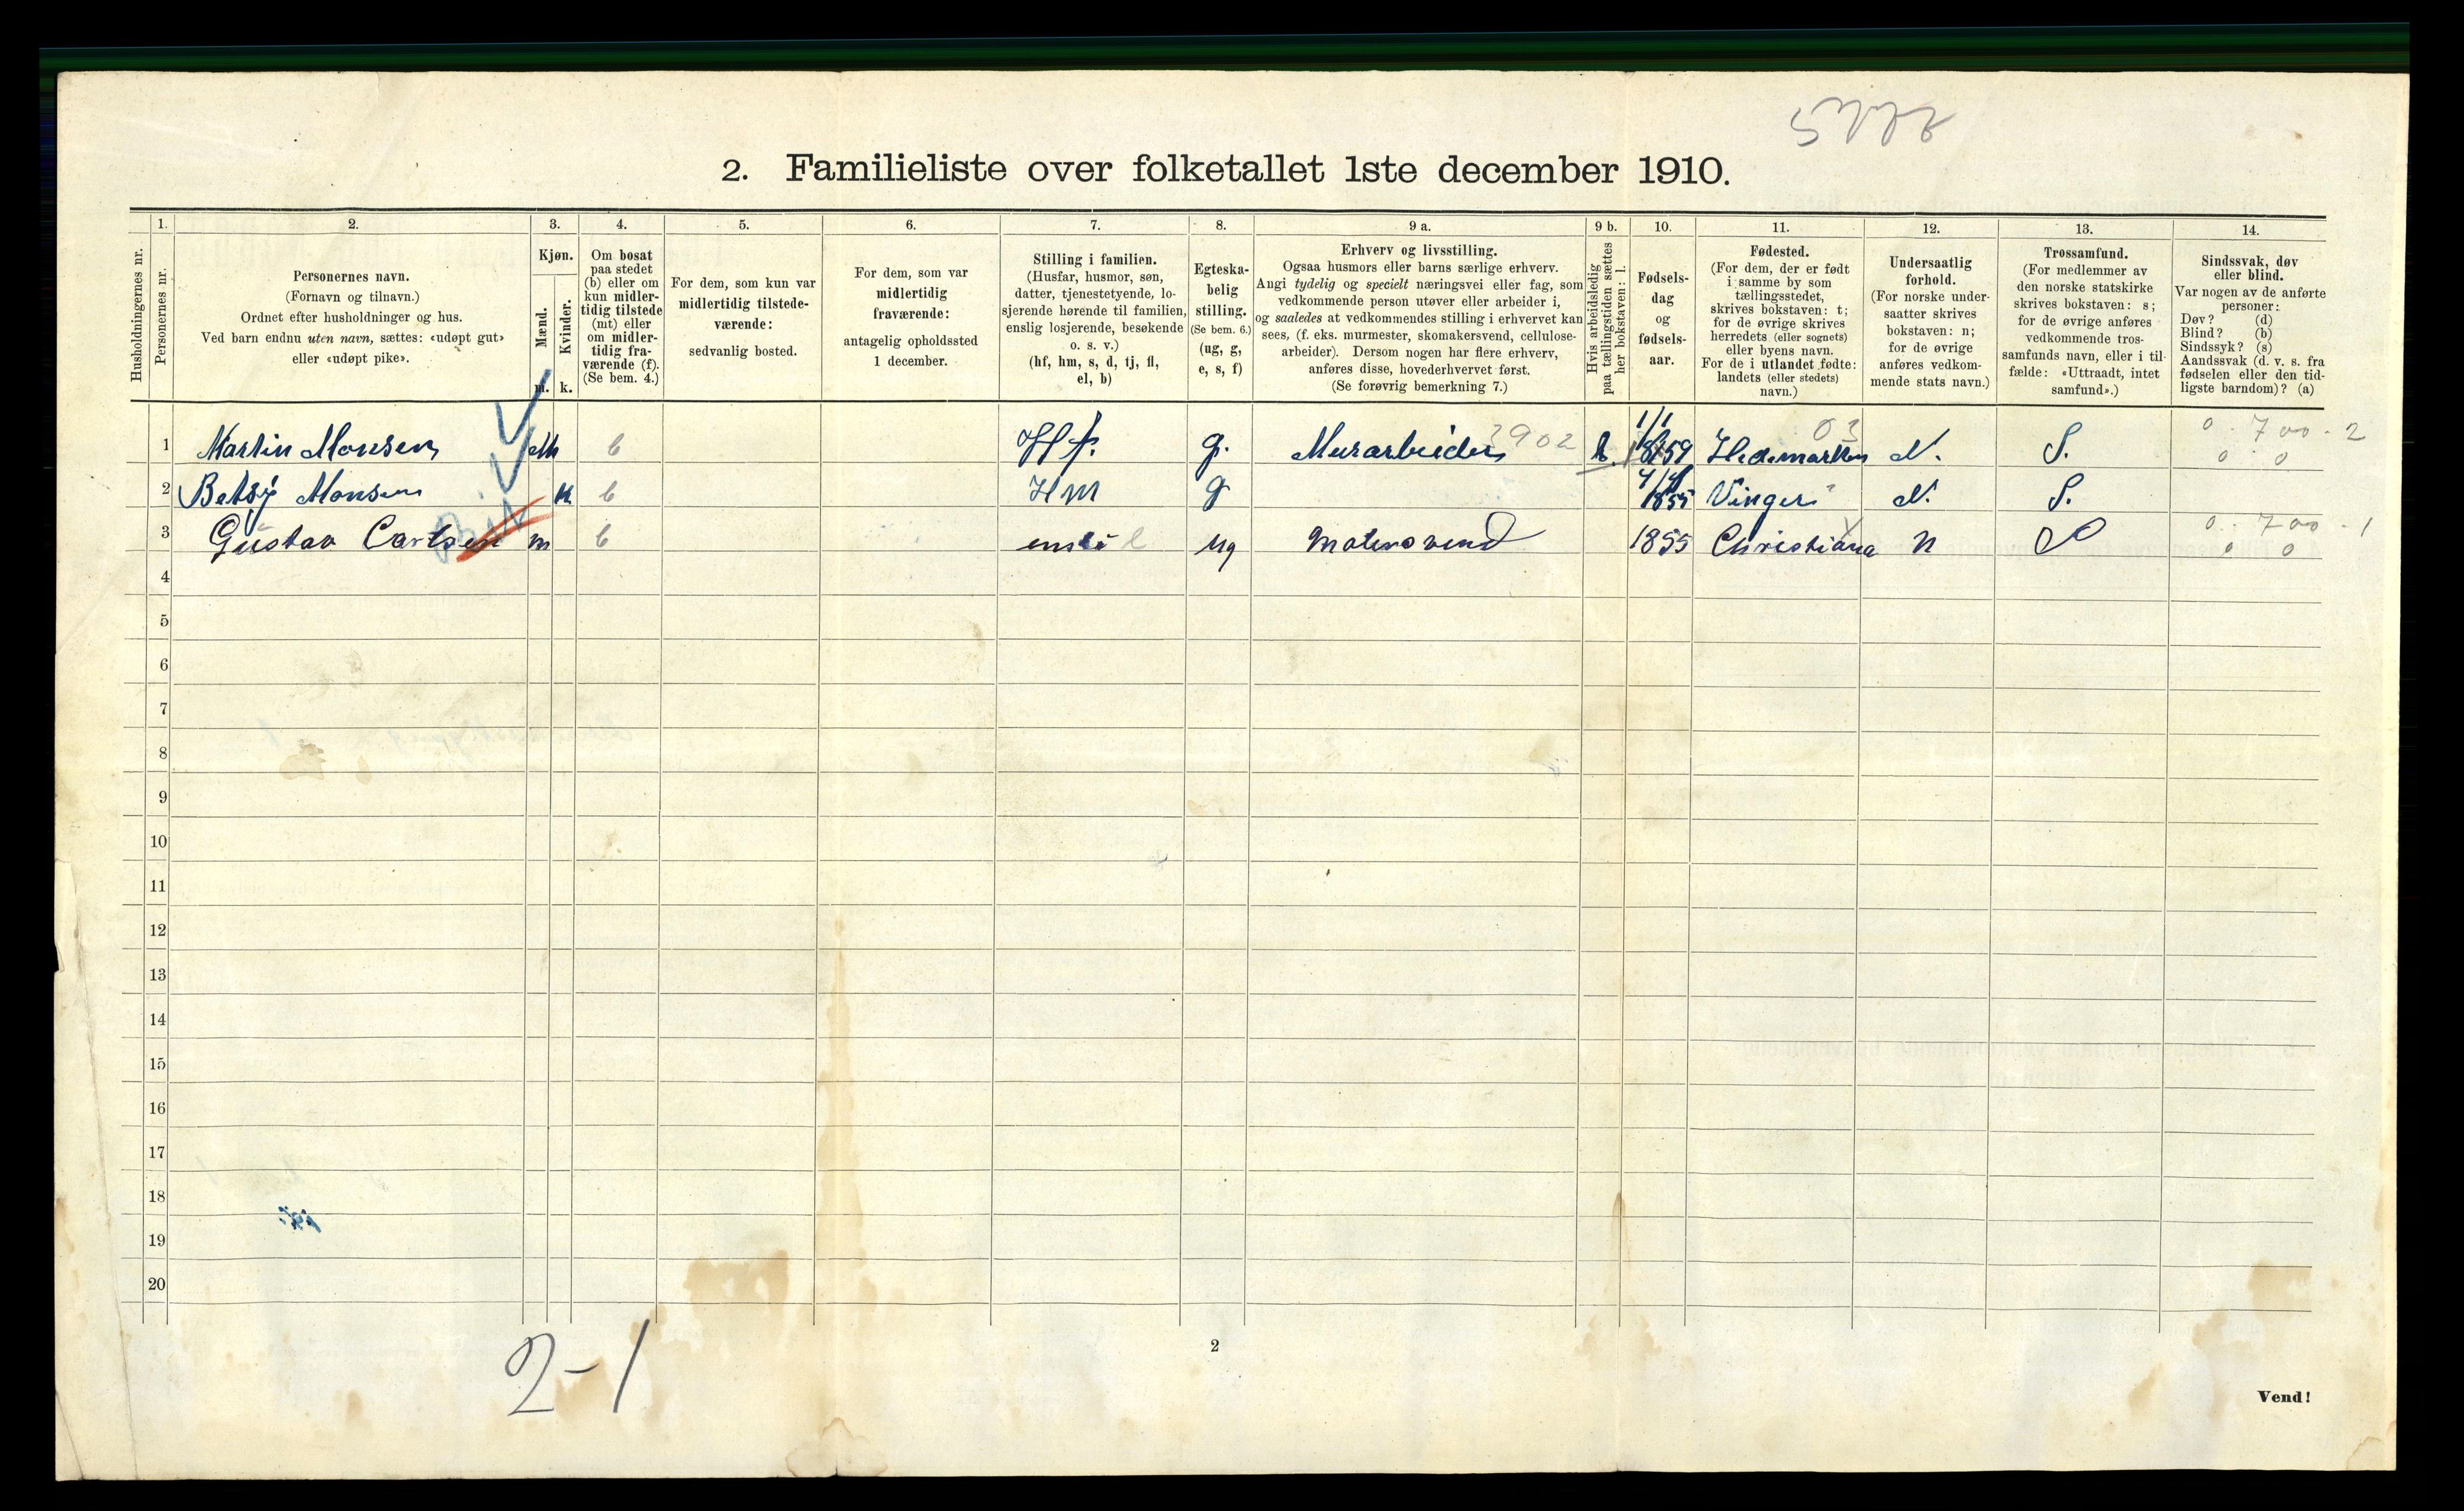 2. Familieliste over folketallet 1ste december 1910.
Husholdningernes nr.
1.
Personernes nr.
2.
Personernes navn.
(Fornavn og tilnavn.)
Ordnet efter husholdninger og hus.
Ved barn endnu uten navn, sættes: «udøpt gut»
eller «udøpt pike».
3.
Kjøn.
Mænd.
Kvinder.
m. k.
4.
Om bosat
paa stedet
(b) eller om
kun midler-
tidig tilstede
(mt) eller
om midler-
tidig fra-
værende (f).
(Se bem. 4.)
5.
For dem, som kun var
midlertidig tilstede-
værende:
sedvanlig bosted.
6.
For dem, som var
midlertidig
fraværende:
antagelig opholdssted
1 december.
7.
Stilling i familien.
(Husfar, husmor, søn,
datter, tjenestetyende, lo-
sjerende hørende til familien,
enslig losjerende, besøkende
o. s. v.)
(hf, hm, s, d, tj, fl,
el, b)
8.
Egteska-
belig
stilling.
(Se bem. 6.)
(ug, g,
e, s, f)
9 a.
Erhverv og livsstilling.
Ogsaa husmors eller barns særlige erhverv.
Angi tydelig og specielt næringsvei eller fag, som
vedkommende person utøver eller arbeider i,
og saaledes at vedkommendes stilling i erhvervet kan
sees, (f. eks. murmester, skomakersvend, cellulose-
arbeider). Dersom nogen har flere erhverv,
anføres disse, hovederhvervet først.
(Se forøvrig bemerkning 7.)
9 b.
Hvis arbeidsledig
paa tællingstiden sættes
her bokstaven: l.
10.
Fødsels-
dag
og
fødsels-
aar.
11.
Fødested.
(For dem, der er født
i samme by som
tællingsstedet,
skrives bokstaven: t;
for de øvrige skrives
herredets (eller sognets)
eller byens navn.
For de i utlandet fødte:
landets (eller stedets)
navn.)
12.
Undersaatlig
forhold.
(For norske under-
saatter skrives
bokstaven: n;
for de øvrige
anføres vedkom-
mende stats navn.)
13.
Trossamfund.
(For medlemmer av
den norske statskirke
skrives bokstaven: s;
for de øvrige anføres
vedkommende tros-
samfunds navn, eller i til-
fælde: «Uttraadt, intet
samfund».)
14.
Sindssvak, døv
eller blind.
Var nogen av de anførte
personer:
Døv? (d)
Blind? (b)
Sindssyk? (s)
Aandssvak (d. v. s. fra
fødselen eller den tid-
ligste barndom)? (a)
1 Martin Monsen M b Hf. g. Murarbeider 3902 l. 1/1 1859 Hedemarken 03 N. S. 0 - 700 - 2
0 0
2 Betsy Monsen K b Hm g 1855 Vinger N. S.
3 Gustav Carlsen m b ensli l ug Malersvend 1855 Christiana n S 0 - 700 - 1
0 0
4
5
6
7
8
9
10
11
12
13
14
15
16
17
18
19
20
2-1
2
Vend!